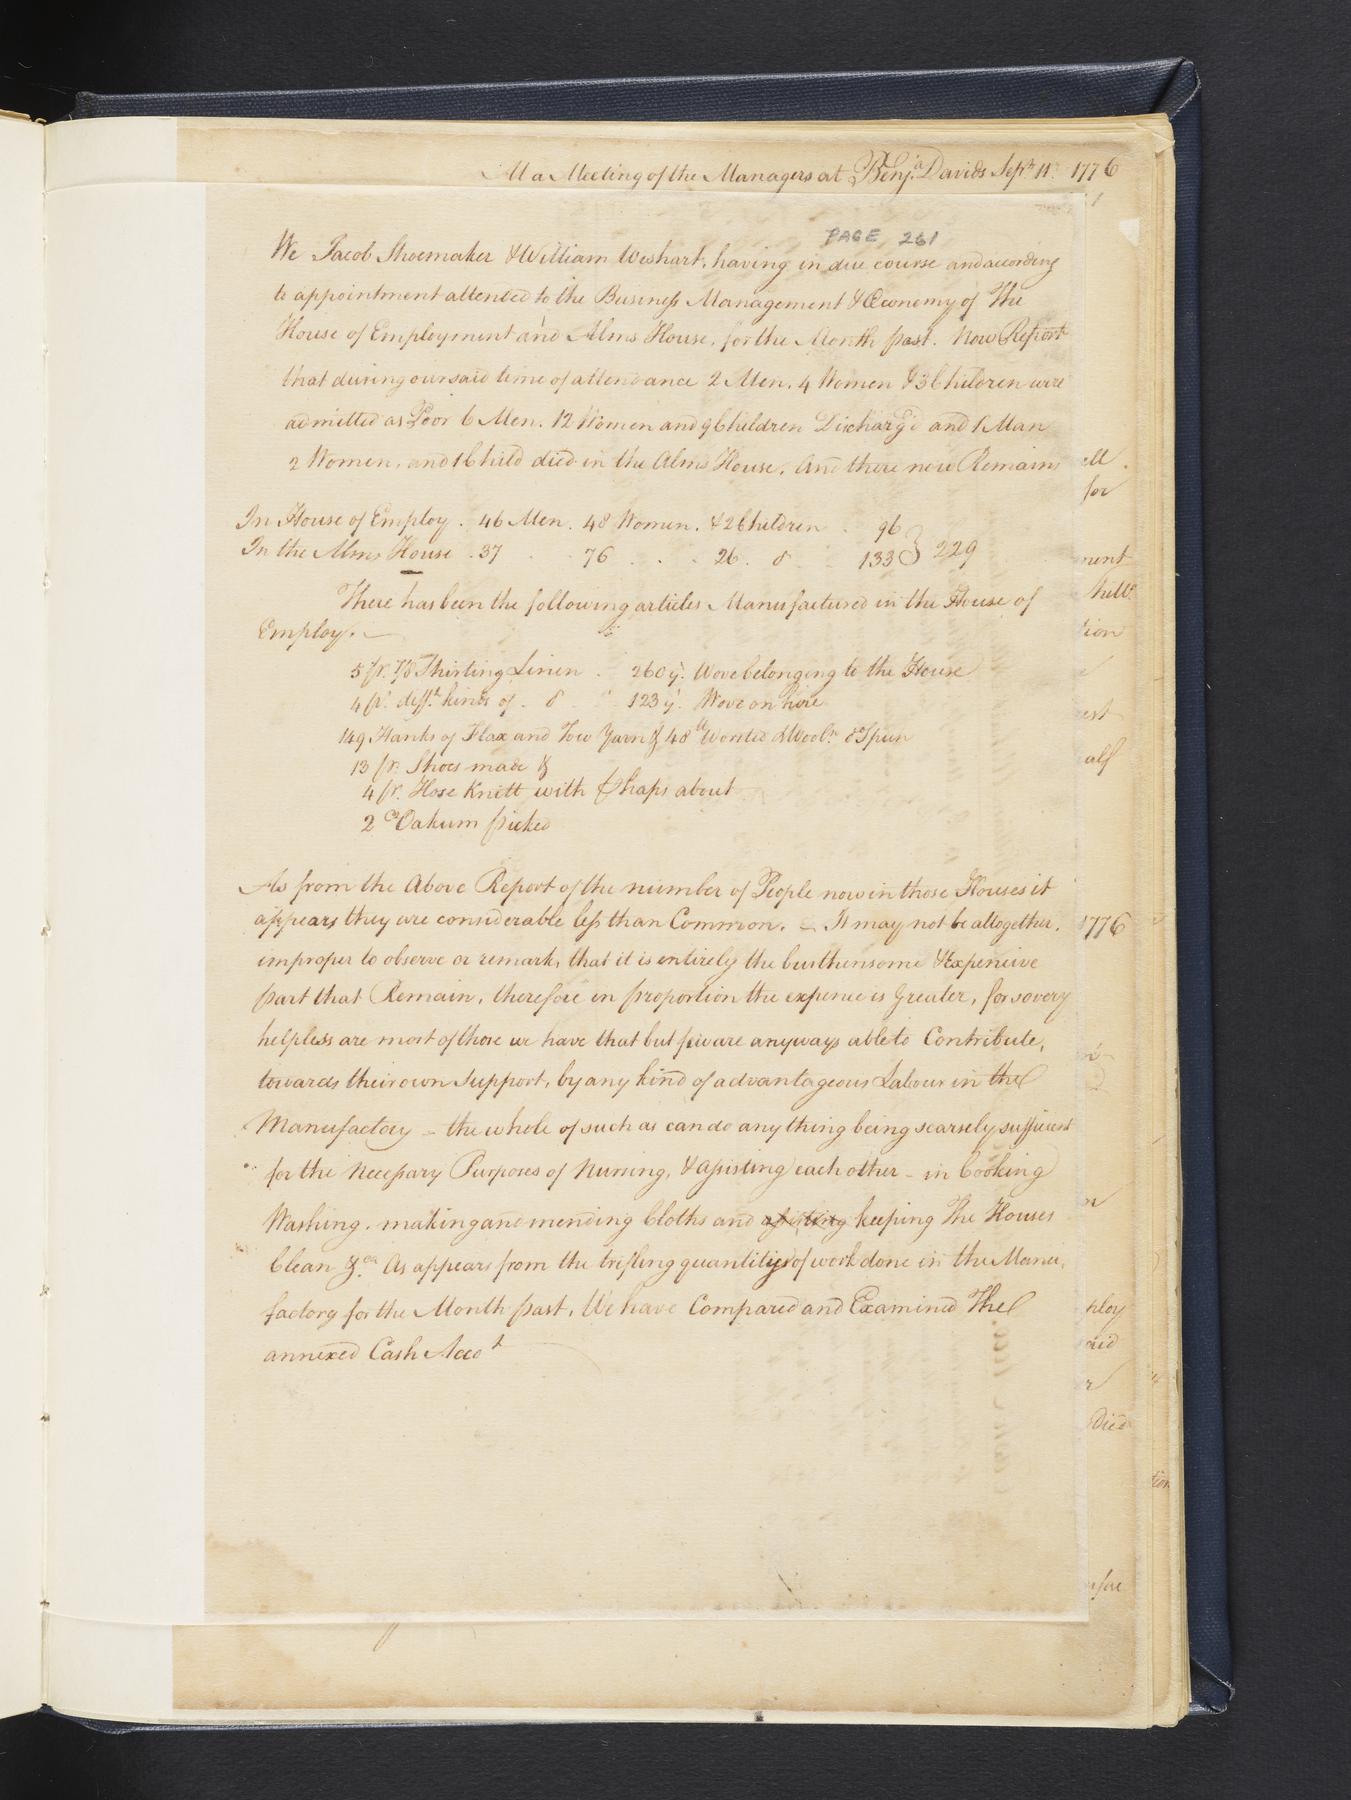 At a Meeting of the Managers at Benjª Davids Septr 11th 1776
PAGE 261
We Jacob Shoemaker & William Wishart, having in due course and according
to appointment attended to the Business Management & Œconomy of The
House of Employment and Alms House, for the Month past. Now Report
that during our said time of attendance 2 Men. 4 Women & 3 Children were
admitted as Poor 6 Men. 12 Women and 9 Children Discharg'd and 1 Man
2 Women, and 1 Child died in the Alms House. And there now Remains
In House of Employ. 46 Men. 48 Women. & 2 Children . 96
In the Alms House . 37 . . 76 . . . 26 . do . 133 } 229
There has been the following articles Manufactured in the House of
Employ.
5 ps. 7/8 Shirting Linen . 260 yds. Wove belonging to the House
4 ps. difft. kinds of . do . 123 yds. Wove on hire
149 Hanks of Flax and Tow Yarn & 48 lb Worsted & Wooln. do Spun
13 pr. Shoes made &
4 pr. Hose Knitt with Phaps about
2 Ct Oakum picked
As from the Above Report of the number of People now in those Houses it
appears they are considerable less than Common. - It may not be altogether,
improper to observe or remark, that it is entirely the burthensome & Expencive
part that Remain, therefore in proportion the expence is Greater, for so very
helpless are most of those we have that but few are anyways able to Contribute,
towards their own Support, by any kind of advantageous Labour in the
Manufactory - the whole of such as can do any thing being scarsely sufficient
for the Necessary Purposes of Nursing, & assisting each other - in Cooking
Washing. making and mending Cloths and assisting keeping The Houses
Clean &ca. As appears from the trifling quantities of work done in the Manu,
factory for the Month past, We have Compared and Examined The
annexed Cash Accot
ell
for
ment
tion
est
alf
1776
ploy
aid
r
Died
tion